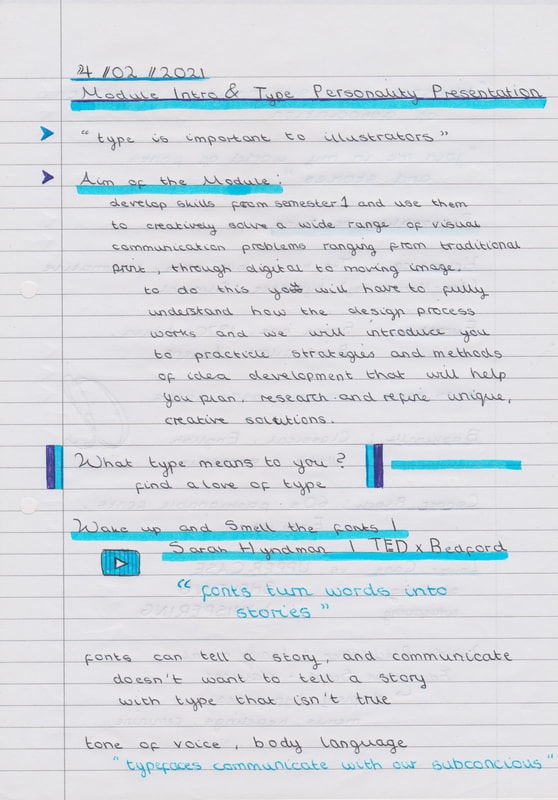 4 //02 //2021
Module Intro & Type Personality Presentation
"type is important to illustrators"
Aim of the Module:
develop skills from semester 1 and use them
to creatively solve a wide range of visual
communication problems ranging from traditional
print, through digital to moving image.
to do this you will have to fully
understand how the design process
works and we will introduce you
to practicle strategies and methods
of idea development that will help
you plan, research and refine unique,
creative solutions.
What type means to you?
find a love of type
Wake up and Smell the fonts |
Sarah Hyndman | TEDxBedford
"fonts turn words into
stories"
fonts can tell a story, and communicate
doesn't want to tell a story
with type that isn't true
tone of voice, body language
"typefaces communicate with our subconcious"